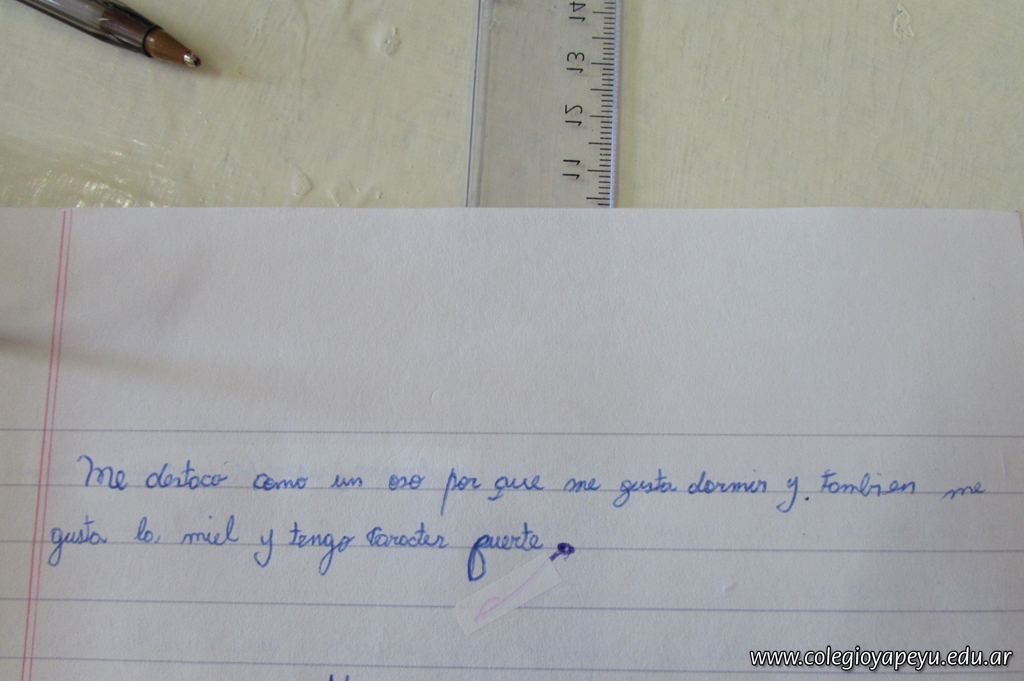 14
13
12
11
Me destacó como un oso por que me gusta dormir y. tambien me
gusta la miel y tengo caracter fuerte.
www.colegioyapeyu.edu.ar